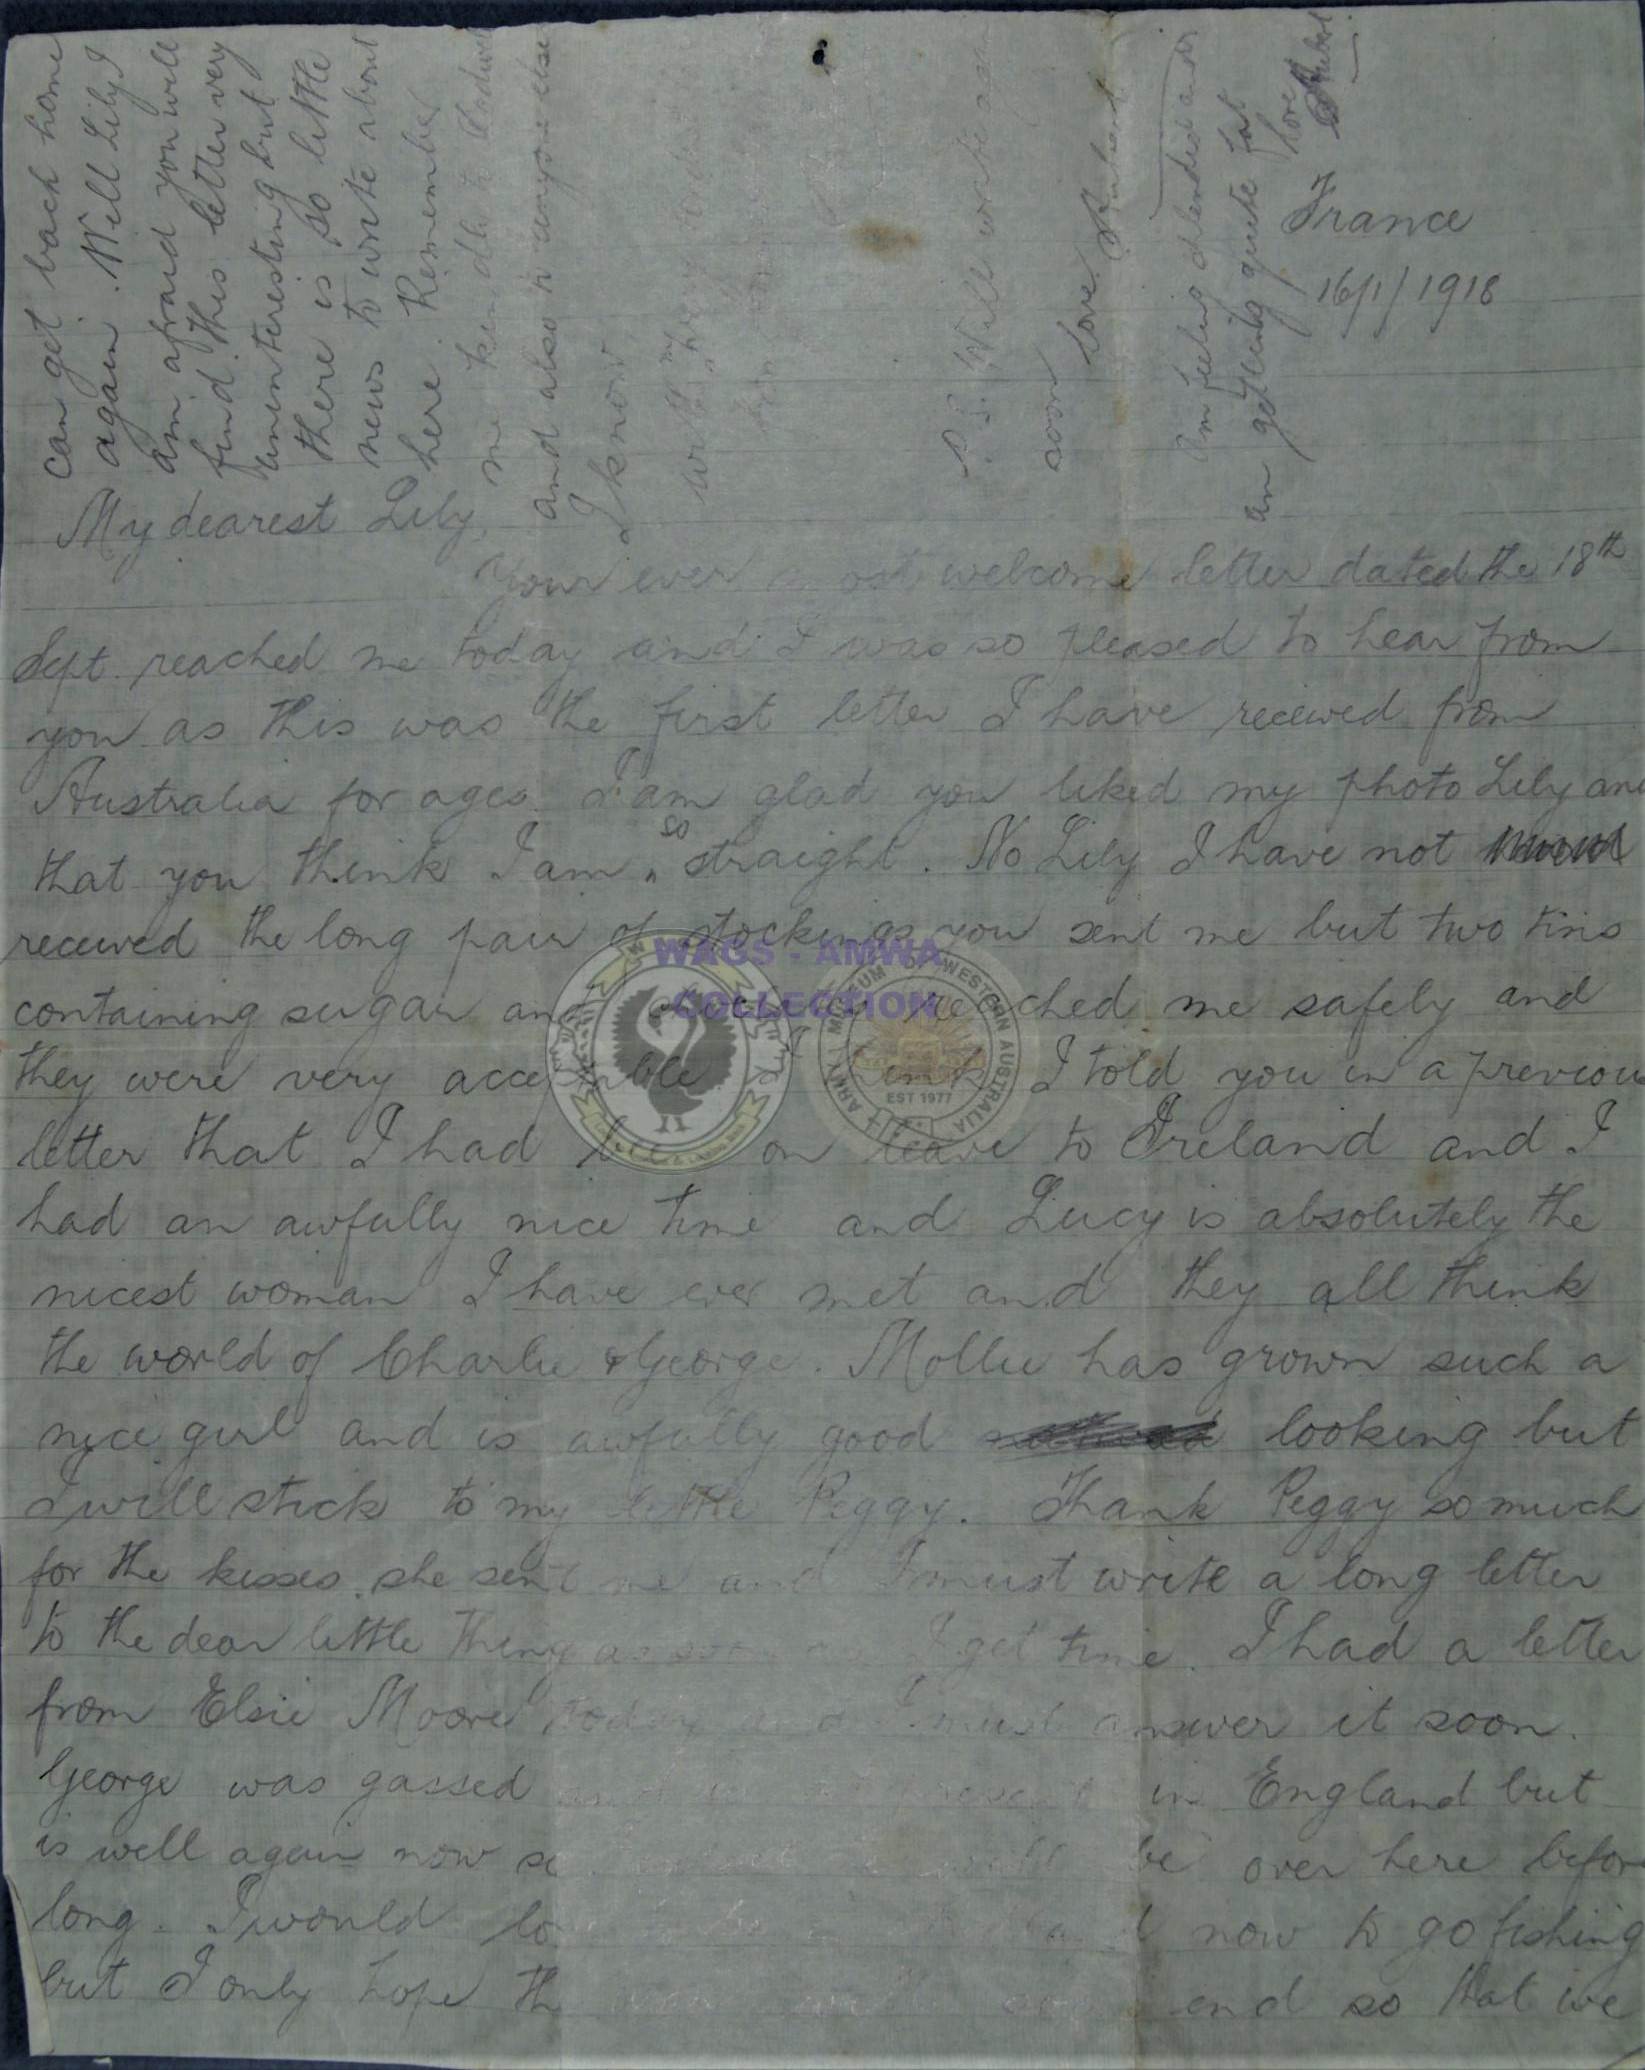 France
16/1/1918
My dearest Lily,
Your ever most welcome letter dated the 18th
Sept. reached me today and I was so pleased to hear from
you as this was the first letter I have received from
Australia for ages. I am glad you liked my photo Lily and
that you think I am so straight. No Lily I have not
received the long pair of stockings you sent me but two tins
containing sugar and reached me safely and
they were very acceptable I think I told you in a previous
letter that I had been on leave to Ireland and I
had an awfully nice time and Lucy is absolutely the
nicest woman I have ever met and they all think
the world of Charlie & George. Mollie has grown such a
nice girl and is awfully good looking but
I will stick to my little Peggy. Thank Peggy so much
for the kisses she sent me and I must write a long letter
to the dear little thing as soon as I get time. I had a letter
from Elsie Moore today and I must answer it soon.
George was gassed and is at present in England but
is well again now so will be over here before
long. I would now to go fishing
but I only hope the war will soon end so that we
can get back home
again. Well Lily I
am afraid you will
find this letter very
uninteresting but
there is so little
news to write about
here. Remember
me kindly to
and also to anyone else
I know.
with my
P.S. Will write again
soon
Love Hubert
Am feeling splendid and
am getting quite fat
Love
Hubert
WAGS - AMWA
COLLECTION
ARMY MUSEUM OF WESTERN AUSTRALIA
EST 1977